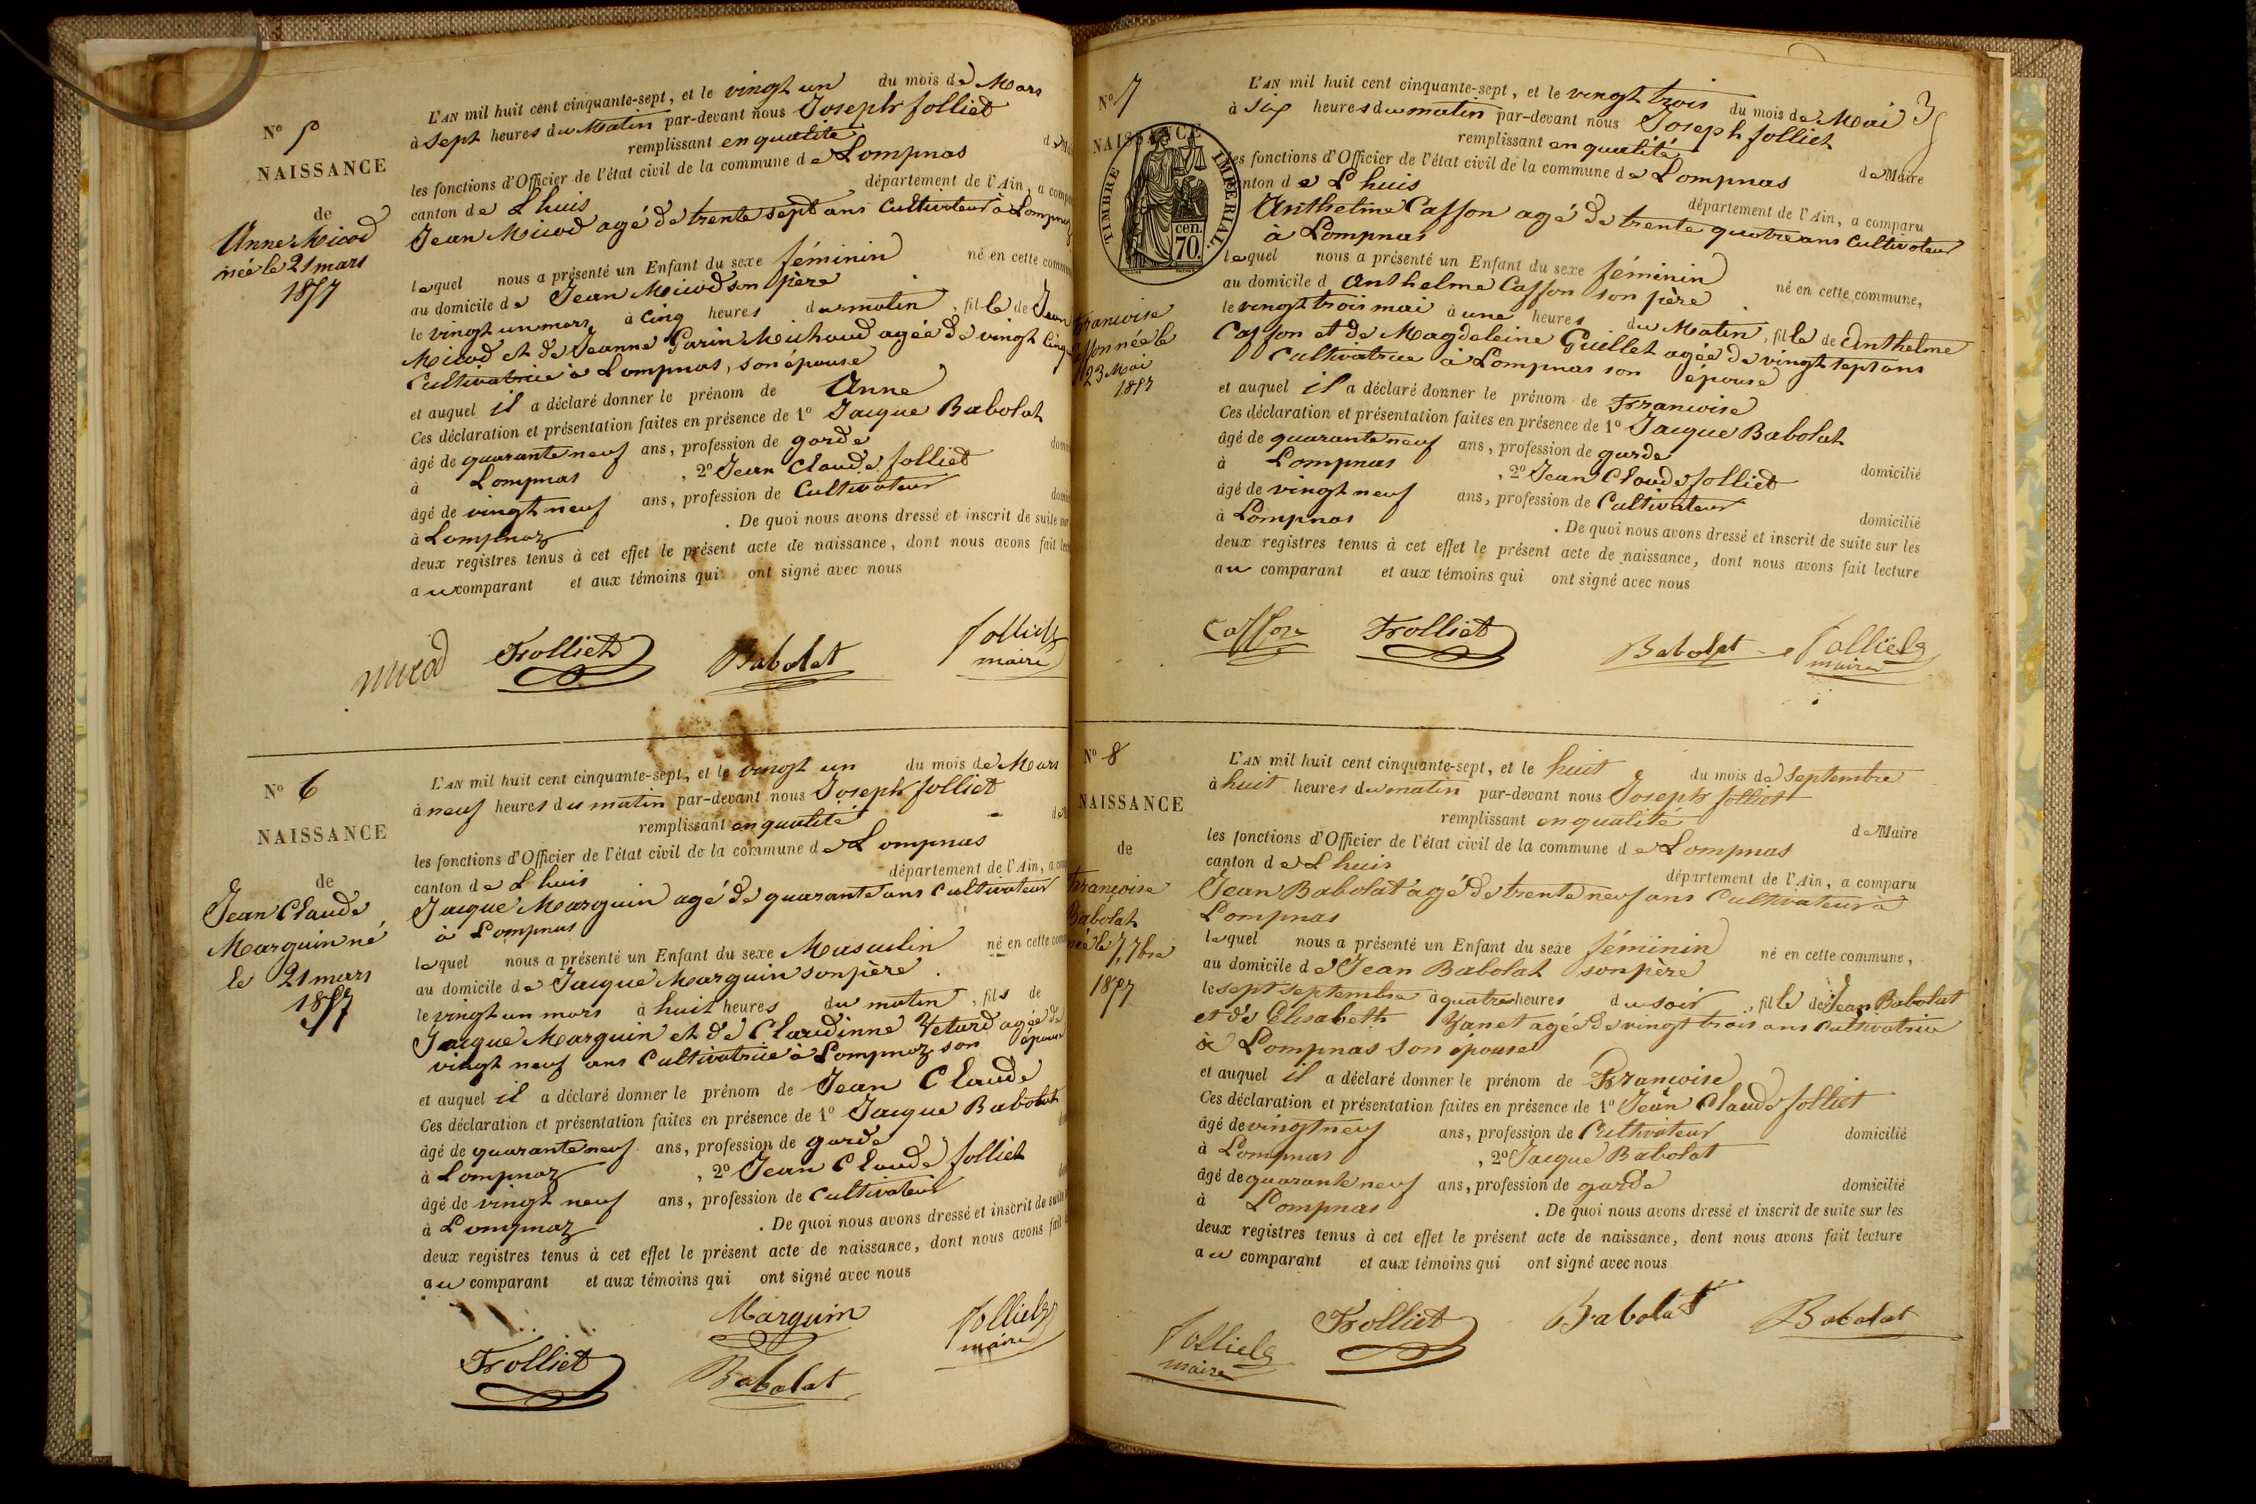 N° 5
NAISSANCE
de
Anne Micod
née le 21 mars
1857
L'AN mil huit cent cinquante-sept, et le vingt un du mois de Mars
à sept heures du Matin par-devant nous Joseph Jolliet
remplissant en qualité de
les fonctions d'Officier de l'état civil de la commune de Lompnas
canton de L huis département de l'Ain, a
Jean Micod agé de trente sept ans Cultivateur à Lompnaz
lequel nous a présenté un Enfant du sexe féminin né en cette
au domicile de Jean Micod son père
le vingt un mars à cinq heures du matin, fille de Jean
Micod et de Jeanne Garin Michaud agée de vingt cinq
Cultivatrice à Lompnas, son épouse
et auquel il a déclaré donner le prénom de Anne
Ces déclaration et présentation faites en présence de 1° Jacque Babolat
âgé de quarante neuf ans, profession de garde
à Lompnas, 2° Jean Claude Jolliet
âgé de vingt neuf ans, profession de Cultivateur
à Lompnaz. De quoi nous avons dressé et inscrit de suite
deux registres tenus à cet effet le présent acte de naissance, dont nous avons fait
au comparant et aux témoins qui ont signé avec nous
Micod Trolliet Babolat Jolliet
maire
N° 6
NAISSANCE
de
Jean Claude
Marguin né
le 21 mars
1857
L'AN mil huit cent cinquante-sept, et le vingt un du mois de Mars
à neuf heures du matin par-devant nous Joseph Jolliet
remplissant en qualité de
les fonctions d'Officier de l'état civil de la commune de Lompnas
canton de L huis département de l'Ain, a
Jacque Marguin agé de quarante ans Cultivateur
à Lompnas
lequel nous a présenté un Enfant du sexe Masculin né en cette
au domicile de Jacque Marguin son père.
le vingt un mars à huit heures du matin, fils de
Jacque Marguin et de Claudinne Veturd agée de
vingt neuf ans Cultivatrice à Lompnaz son épouse
et auquel il a déclaré donner le prénom de Jean Claude
Ces déclaration et présentation faites en présence de 1° Jacque Babolat
âgé de quarante neuf ans, profession de garde
à Lompnaz, 2° Jean Claude Jolliet
âgé de vingt neuf ans, profession de Cultivateur
à Lompnaz. De quoi nous avons dressé et inscrit de suite
deux registres tenus à cet effet le présent acte de naissance, dont nous avons fait
au comparant et aux témoins qui ont signé avec nous
Marguin Jolliet
maire
Trolliet Babolat
3
N° 7
NAISSANCE
TIMBRE IMPÉRIAL.
cen.
70.
Francoise
née le
23 Mai
1857
L'AN mil huit cent cinquante-sept, et le vingt trois du mois de Mai
à six heures du matin par-devant nous Joseph Jolliet
remplissant en qualité de Maire
les fonctions d'Officier de l'état civil de la commune de Lompnas
canton de L huis département de l'Ain, a comparu
Anthelme Casson agé de trente quatre ans Cultivateur
à Lompnas
lequel nous a présenté un Enfant du sexe féminin né en cette commune,
au domicile d Anthelme Casson son père
le vingt trois mai à une heures du Matin, fille de Anthelme
Casson et de Magdeleine Guillet agée de vingt sept ans
Cultivatrice à Lompnas son épouse
et auquel il a déclaré donner le prénom de Francoise
Ces déclaration et présentation faites en présence de 1° Jacque Babolat
âgé de quarante neuf ans, profession de garde domicilié
à Lompnas, 2° Jean Claude Jolliet
âgé de vingt neuf ans, profession de Cultivateur domicilié
à Lompnas. De quoi nous avons dressé et inscrit de suite sur les
deux registres tenus à cet effet le présent acte de naissance, dont nous avons fait lecture
au comparant et aux témoins qui ont signé avec nous
Casson Trolliet Babolat Jolliet
maire
N° 8
NAISSANCE
de
Françoise
Babolat
née le 7 7bre
1857
L'AN mil huit cent cinquante-sept, et le huit du mois de Septembre
à huit heures du matin par-devant nous Joseph Jolliet
remplissant en qualité de Maire
les fonctions d'Officier de l'état civil de la commune de Lompnas
canton de L huis département de l'Ain, a comparu
Jean Babolat agé de trente neuf ans Cultivateur à
Lompnas
lequel nous a présenté un Enfant du sexe féminin né en cette commune,
au domicile de Jean Babolat son père
le sept septembre à quatre heures du soir, fille de Jean Babolat
et de Elisabeth Yanet agée de vingt trois ans Cultivatrice
à Lompnas son épouse
et auquel il a déclaré donner le prénom de Francoise
Ces déclaration et présentation faites en présence de 1° Jean Claude Jolliet
âgé de vingt neuf ans, profession de Cultivateur domicilié
à Lompnas, 2° Jacque Babolat
âgé de quarante neuf ans, profession de garde domicilié
à Lompnas. De quoi nous avons dressé et inscrit de suite sur les
deux registres tenus à cet effet le présent acte de naissance, dont nous avons fait lecture
au comparant et aux témoins qui ont signé avec nous
Jolliet Trolliet Babolat Babolat
maire